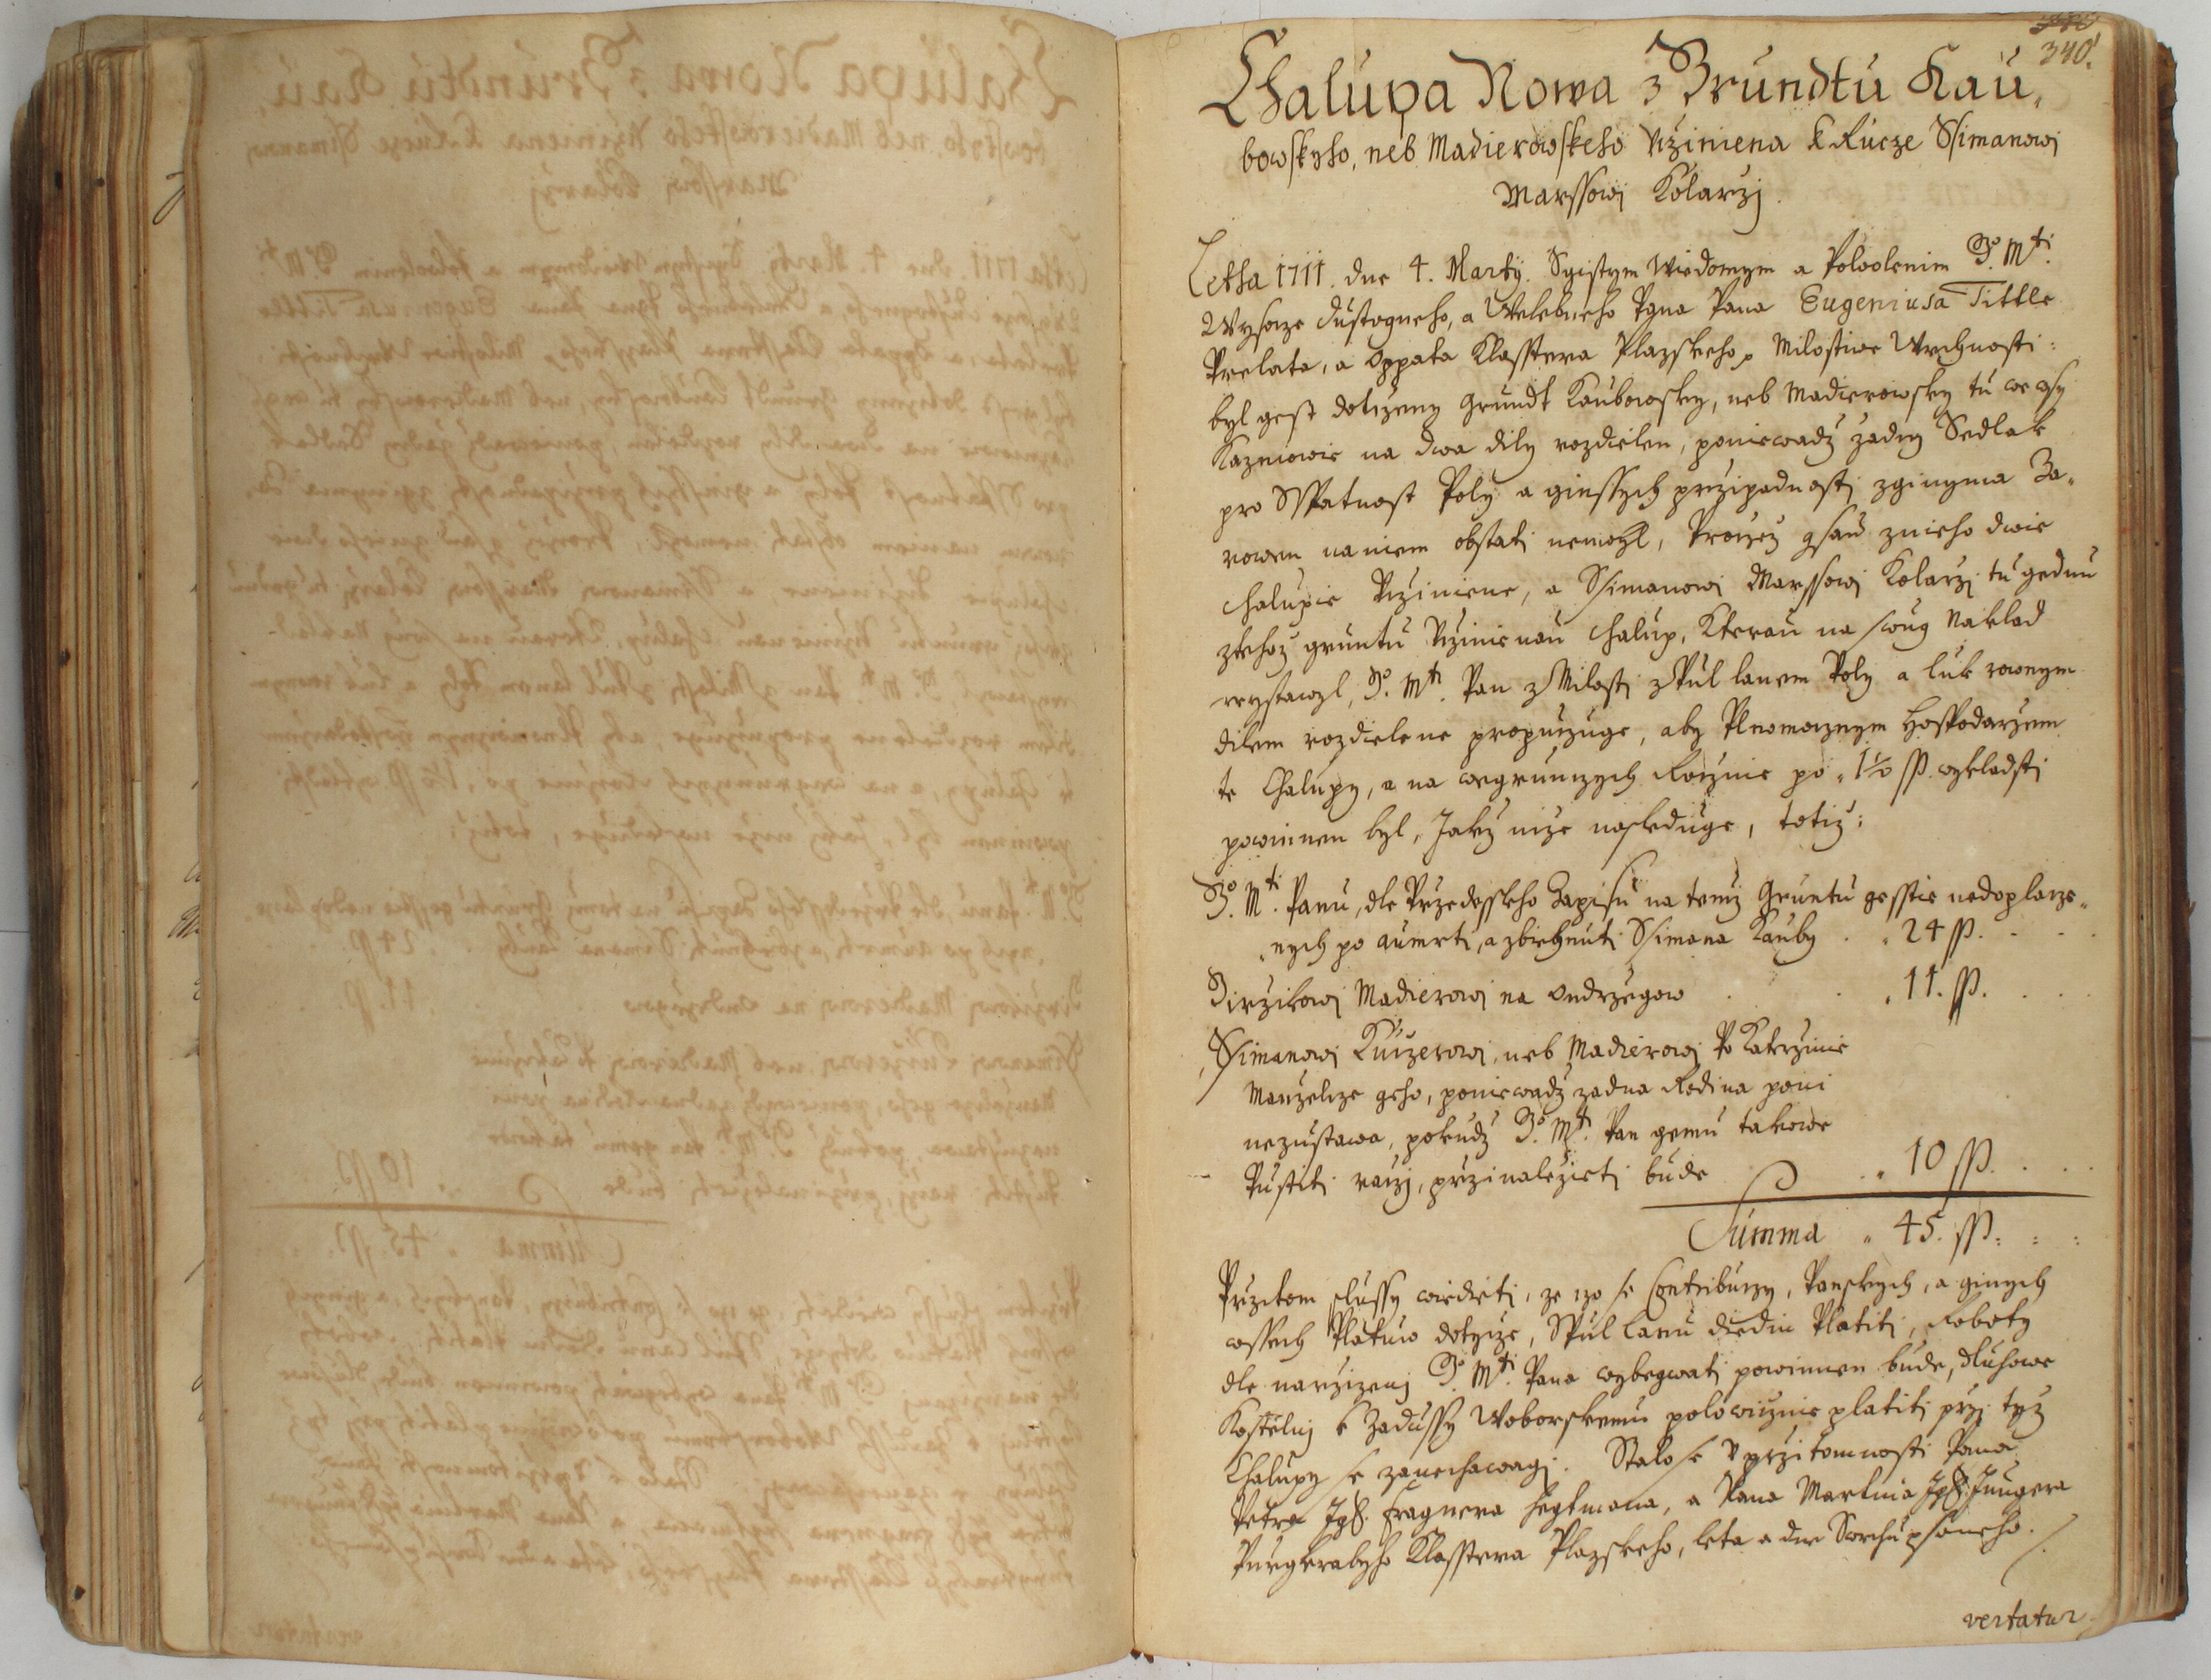 340
340.
Chalupa Nowa z Grundtu Kau,
bowskyho, neb Madierowskeho Vziniena k Rucze Ssimanowi
Marssowi Kolarzi.
Letha 1711. dne 4. Marty. Sgistym Wiedomym a Powolenim J.º M.ti
Wysocze Dustogneho, a Welebneho Pana Pana Eugeniusa Tittle
Prelata, a Oppata Klasstera Plazskeho, Milostiwe Wrchnosti:
byl gest dotczeny Grundt Kaubowsky, neb Madierowsky tu we wsy
Kazniowie na dwa dily rozdielen, poniewadz zadny Sedlak
pro Sspatnost Poly a ginssych przipadnosti zginyma Za„
rowen naniem obstati nemohl, Procez gsau znieho dwie
chalupie Vziniene, a Ssimanowi Marssowi Kolarzi tu gednu
ztehoz gruntu Vzinienau chalup, Kterau na swug Naklad
wystawzl, J.º M.ti Pan z Milosti z Pul lanem Poly a luk rownym
dilem rozdielene propuczuge, aby Plnomocznym Hospodarzem
te Chalupy, a na wegrunczych Rocznie po „ 1½ ss. wykladsti
powinnen byl, Jakz nize nasleduge, totiz:
J.º M.ti Panu, dle Przedesskeho Zapisu na temz Gruntu gesstie nedoplacze„
„nych po aumrti, a zbiehnuti Ssimana Kauby . „ 24 ss. . . .
Jirzikowi Madierowi na Ondrzegow . . „ 11. ss. . . .
Ssimanowi Kuczerowi, neb Madierowi Po Katerzinie
Manzelcze geho, poniewadz zadna Rodina poni
nezustawa, pokudz J.º M.ti Pan gemu takowe
Pustiti raczi, przinalezieti bude . „ 10 ss. . . .
Summa „ 45. ss. : : :
Przitom slussy wiedieti, ze czo se Contribuczy, Panskych, a ginych
wssech Platuw dotycze, Spul Lanu diedin Platiti, Roboty
dle narzizeni J.º M.ti Pana wybegwati powinnen bude, dluhowe
Kostelni k Zadussy Woborskemu polowicznie platiti przi tyz
Chalupy se zanechawagi. Stalo se Vprzitomnosti Pana
Petra Jgß. Fragnera Hegtmana, a Pana Martina Jgß. Jungera
Purgkrabyho Klasstera Plazskeho, leta a dne Swrchupsaneho.
vertatur